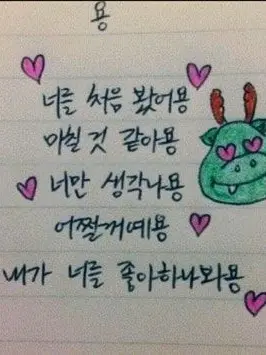 용
너를 처음 봤어용
미칠것 같아용
너만 생각나용
어쩔거예용
내가 너를 좋아하나봐용